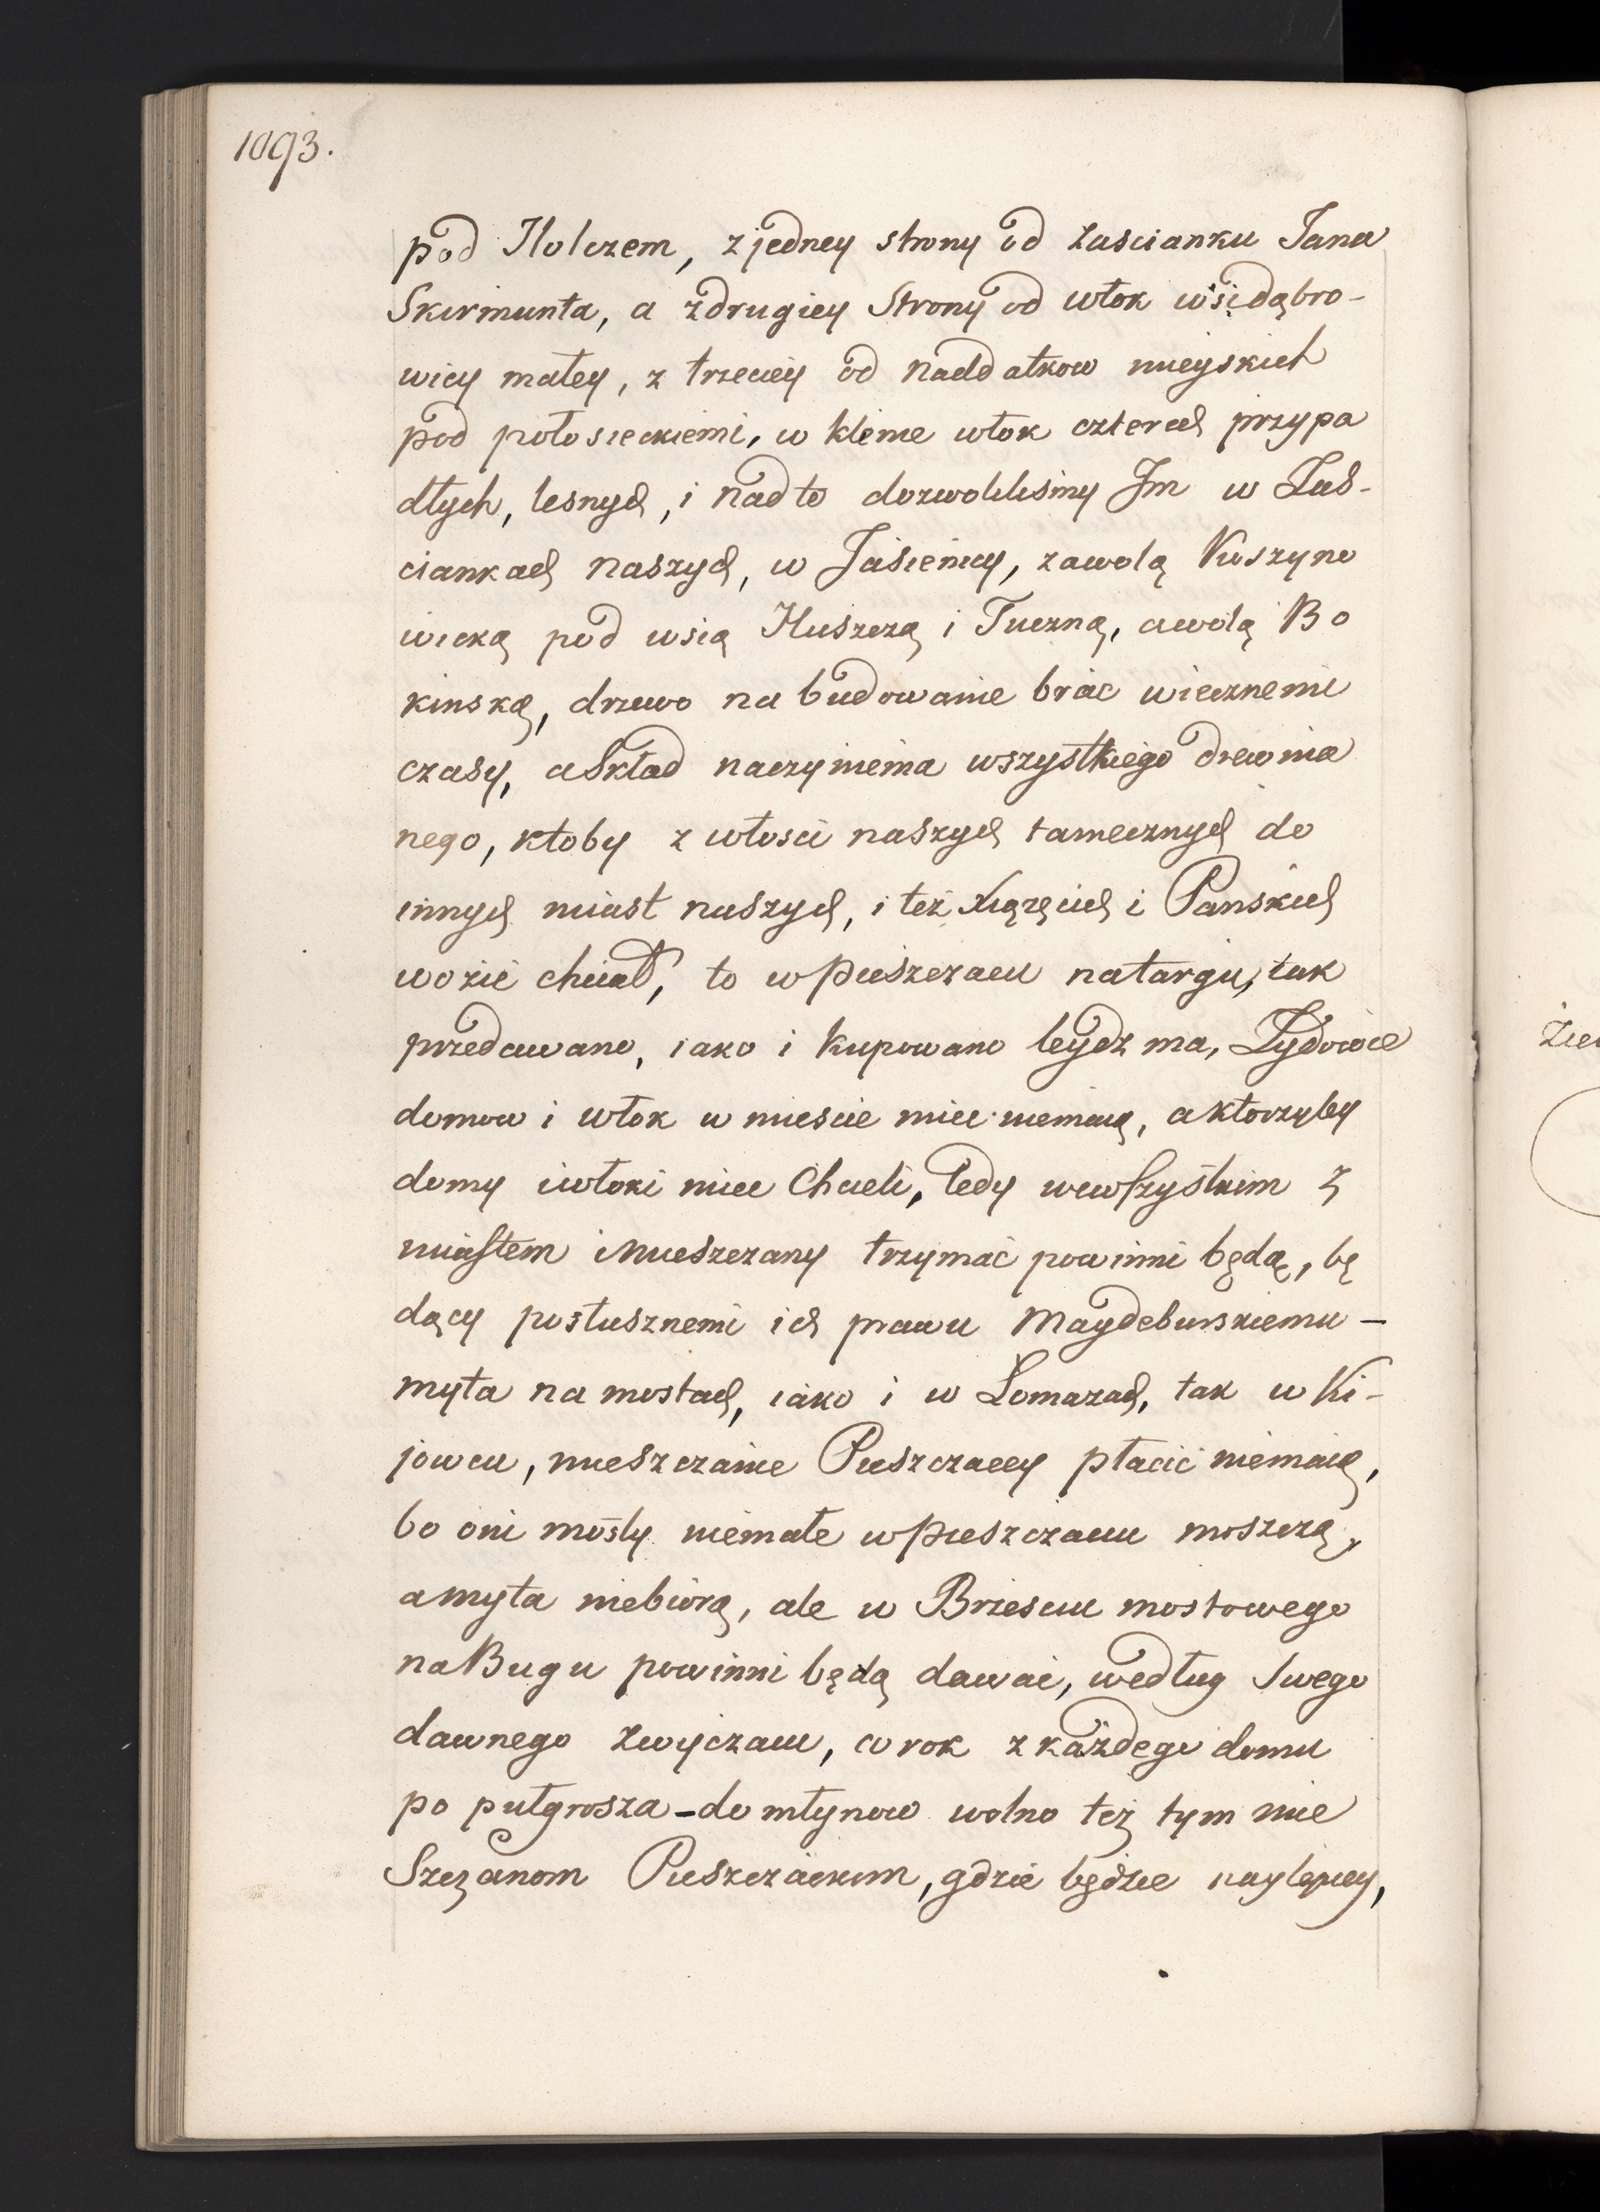 1093.
pod Holczem, z jedney strony od Zascianku Jana
Skirmunta, a zdrugiey Strony od włok wsi dąbro-
wicy małey, z trzeciey od Naddatkow mieyskich
pod połosieckiemi, w klinie włok czterech przypa
dłych, lesnych, i Nad to dozwoliliśmy Jm w Zas-
ciankach Naszych, w Jasienicy, za wolą Koszyno
wicką pod wsią Huszczą i Tuczną, a wolą Bo
kinską, drzewo na budowanie brac wiecznemi
czasy, a Skład naczynienia wszystkiego drewnia
nego, ktoby z włosci naszych tamecznych do
innych miast naszych, i też Xiążęcich i Panskich
wozić chciał, to w Piszczacu na targu, tak
przedawano, iako i kupowano bydz ma, Żydowie
domow i włok w miescie miec niemaią, a ktorzyby
domy i włoki miec Chcieli, tedy wewszystkim z
miastem i Mieszczany trzymać powinni będą, bę
dący posłusznemi ich prawu Maydeburskiemu –
myta na mostach, iako i w Łomazach, tak w Ki-
jowcu, mieszczanie Pieszczaccy płacić niemaią,
bo oni mosty niemałe w Pieszczacu moszczą,
a myta niebiorą, ale w Brzesciu mostowego
na Bugu powinni będą dawac, według Swego
dawnego Zwyczaiu, w rok z każdego domu
po pułgrosza – do młynow wolno też tym mie
Szczanom Pieszczackim, gdzie będzie naylepiey,
Zie